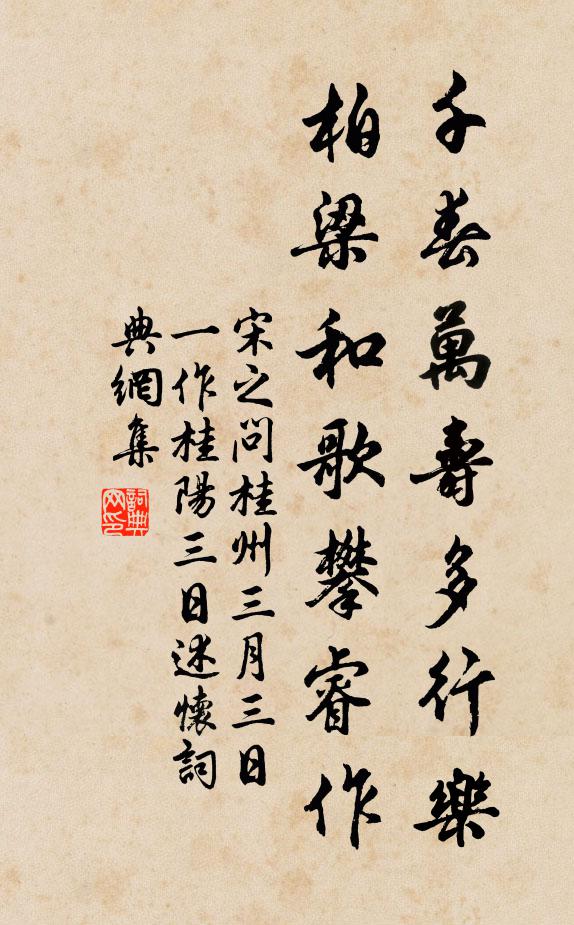 千春萬壽多行樂
柏梁和歌攀睿作
宋之問桂州三月三日
一作桂陽三日述懷詞
典網集
詞典网印